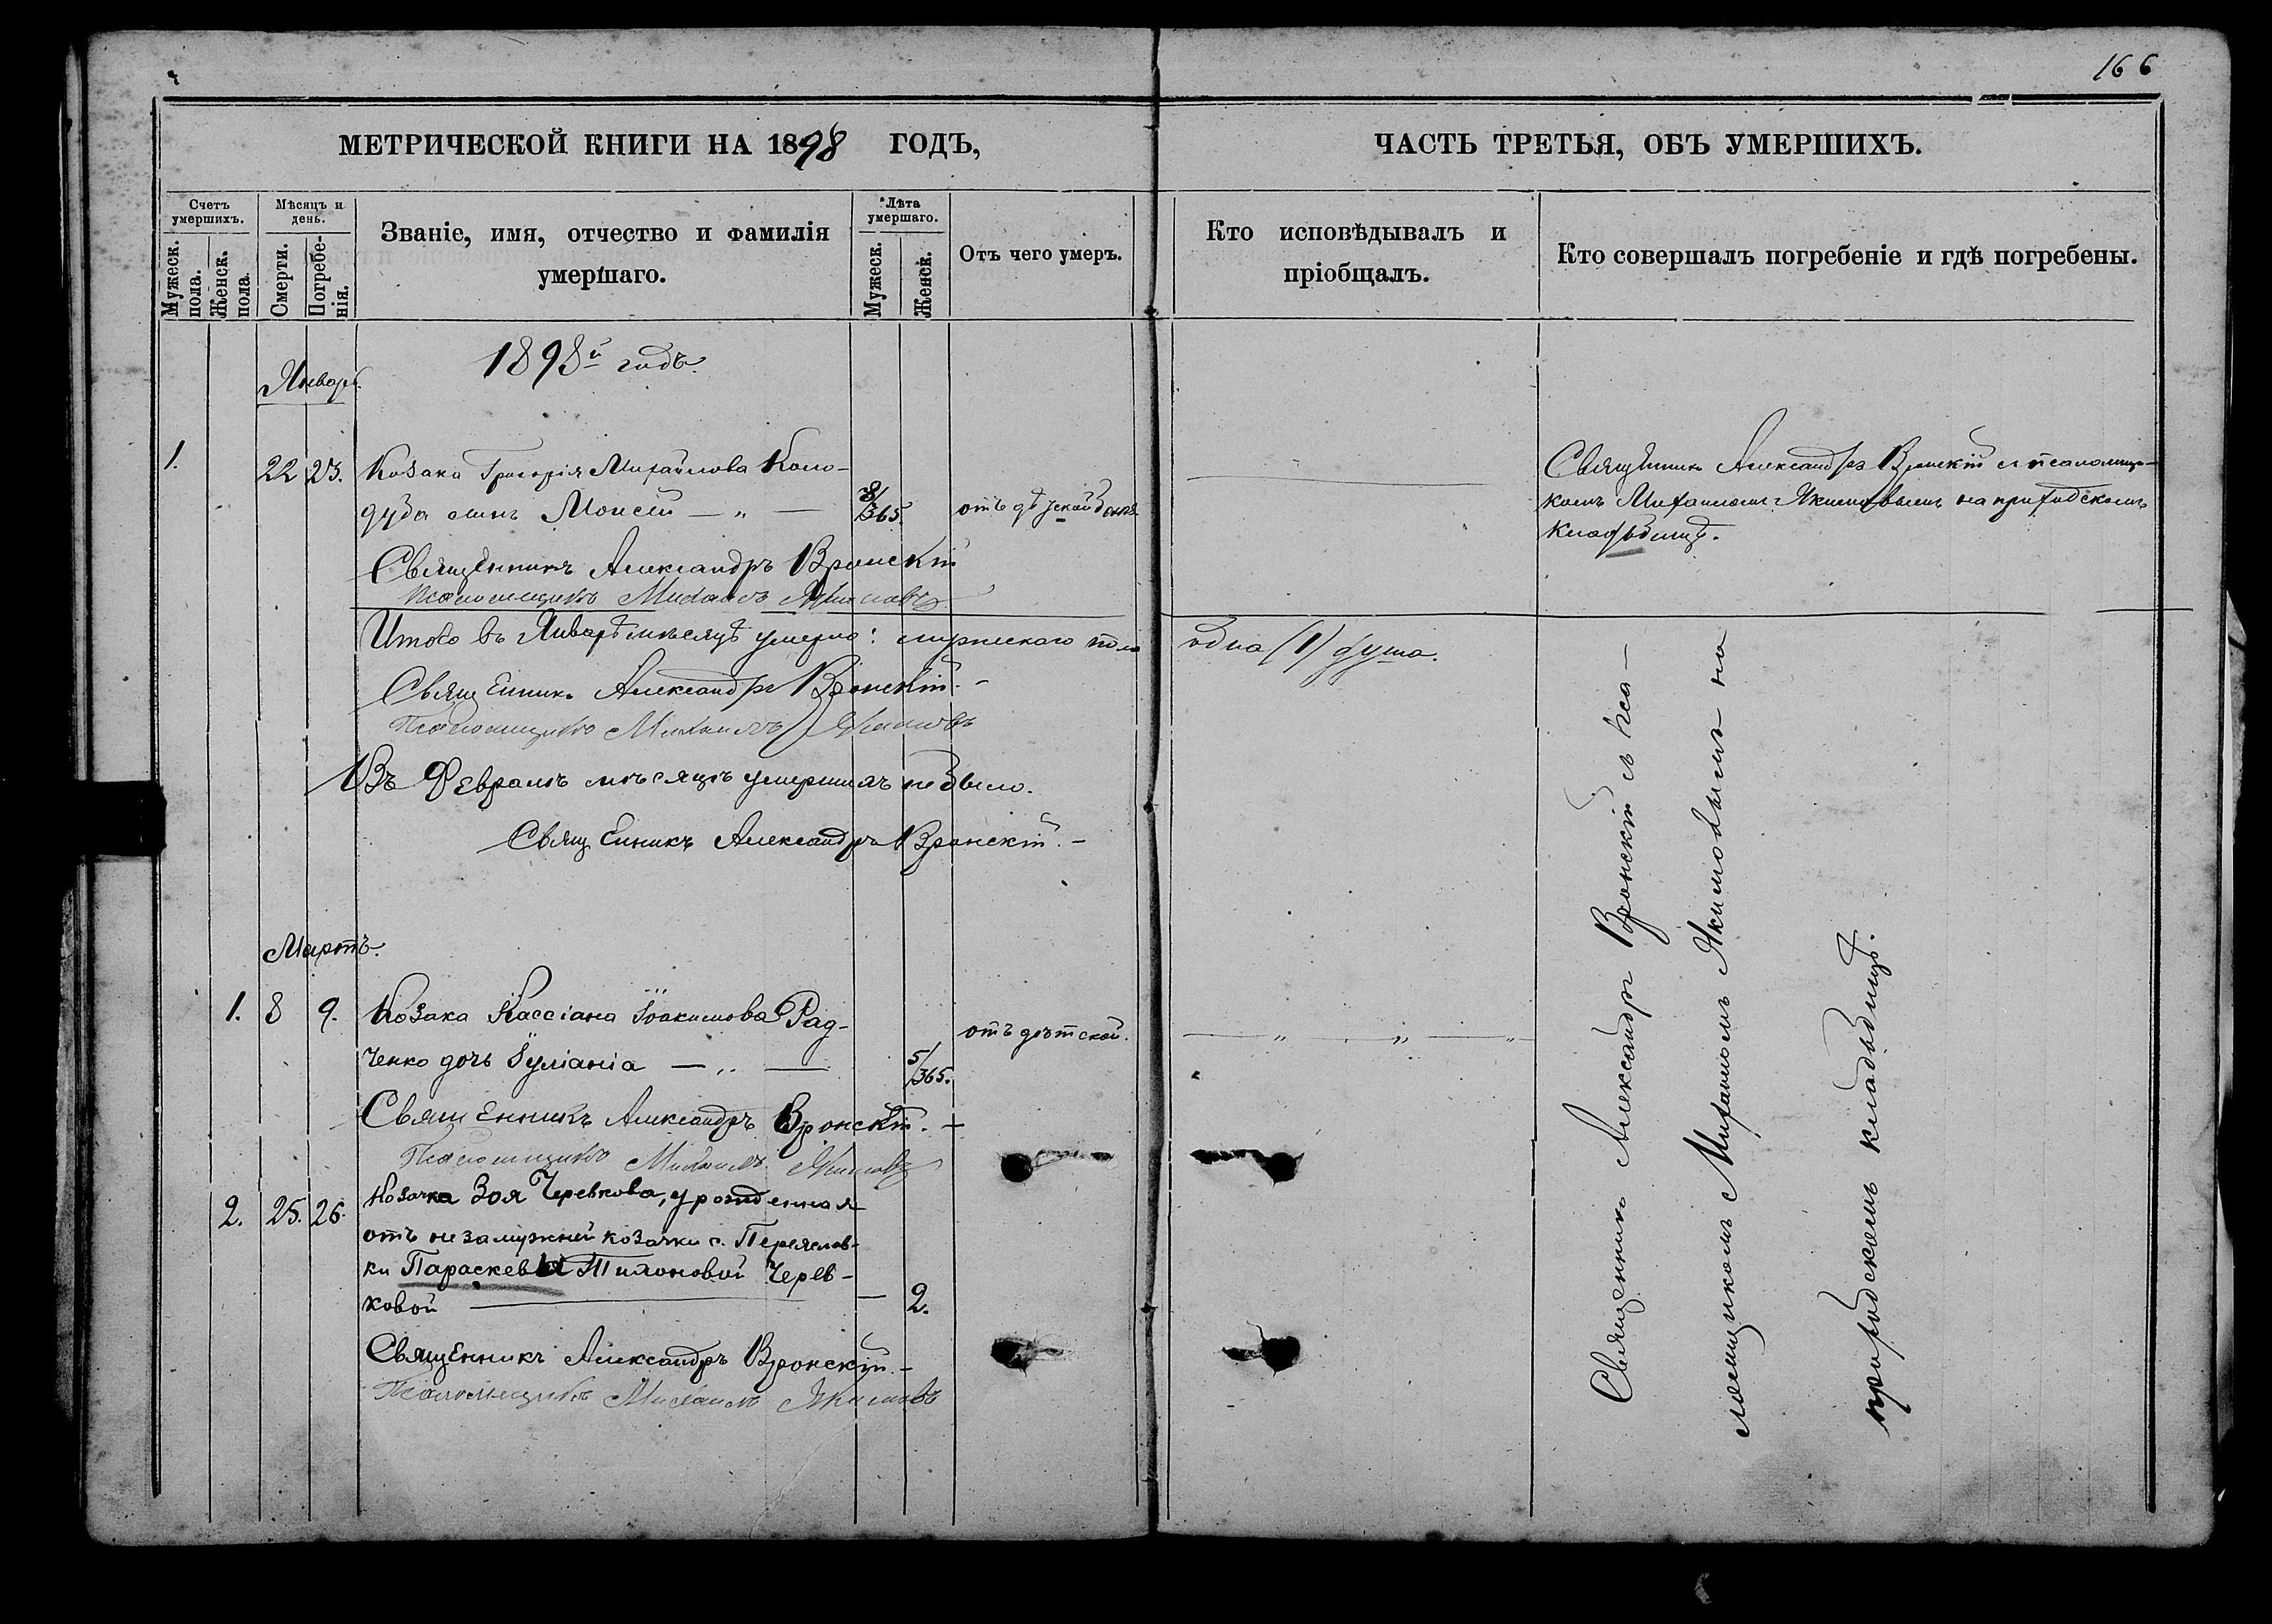 166
МЕТРИЧЕСКОЙ КНИГИ НА 1898 ГОДЪ,
ЧАСТЬ ТРЕТЬЯ, ОБЪ УМЕРШИХЪ.
Счетъ умершихъ.
Мужеск. пола.
Женск. пола
Мѣсяцъ и день.
Смерти.
Погребе-
нія.
Званіе, имя, отчество и фамилія
умершаго.
Лѣта умершаго.
Мужеск.
Женск.
Отъ чего умеръ.
Кто исповѣдывалъ и
пріобщалъ.
Кто совершалъ погребеніе и гдѣ погребены.
1898й годъ.
Январь.
1. 22 23. Козака Григорія Михайлова Коло-
дуба сынъ Моисей — „ — 8/365. отъ
Священникъ Александръ Вронскій
Псаломщикъ Михаилъ Якимовъ
Священникъ Александръ Вронскій съ псаломщи-
комъ Михаиломъ Якимовымъ на приходскомъ
кладбищѣ.
Итого въ Январѣ мѣсяцѣ умерло: мужескаго пола одна (1) душа.
Священникъ Александръ Вронскій. -
Псаломщикъ Михаилъ Якимовъ
Въ Февралѣ мѣсяцѣ умершихъ не было.
Священникъ Александръ Вронскій. -
Мартъ.
1. 8 9. Козака Кассіана Іоакимова Рад-
ченко дочь Іуліанія — „ — 5/365. отъ дѣтской. — „ — „ — „
Священникъ Александръ Вронскій. -
Псаломщикъ Михаилъ Якимовъ
2. 25. 26. Козачка Зоя Черевкова, урожденная
отъ незамужней козачки с. Переяслав-
ки Параскевы Тихоновой Черев-
ковой — — 2.
Священникъ Александръ Вронскій. -
Псаломщикъ Михаилъ Якимовъ
Священникъ Александръ Вронскій съ пса-
ломщикомъ Михаиломъ Якимовымъ на
приходскомъ кладбищѣ.